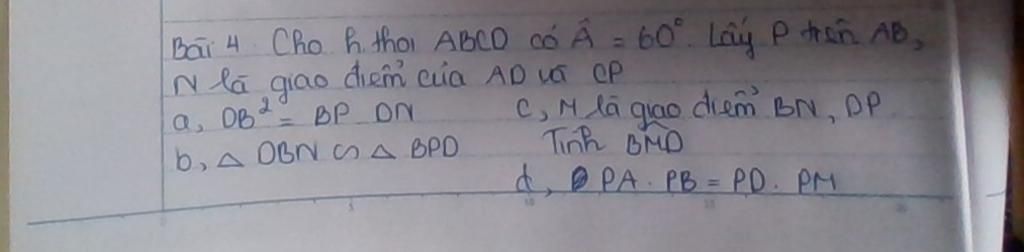 Bài 4. Cho h.thoi ABCD có Â = 60°. Lấy P trên AB,
N là giao điểm của AD và CP
a, DB² = BP. DN
b, △ DBN ∽ △ BPD
c, M là giao điểm BN, DP.
Tính BMD
d, PA. PB = PD. PM